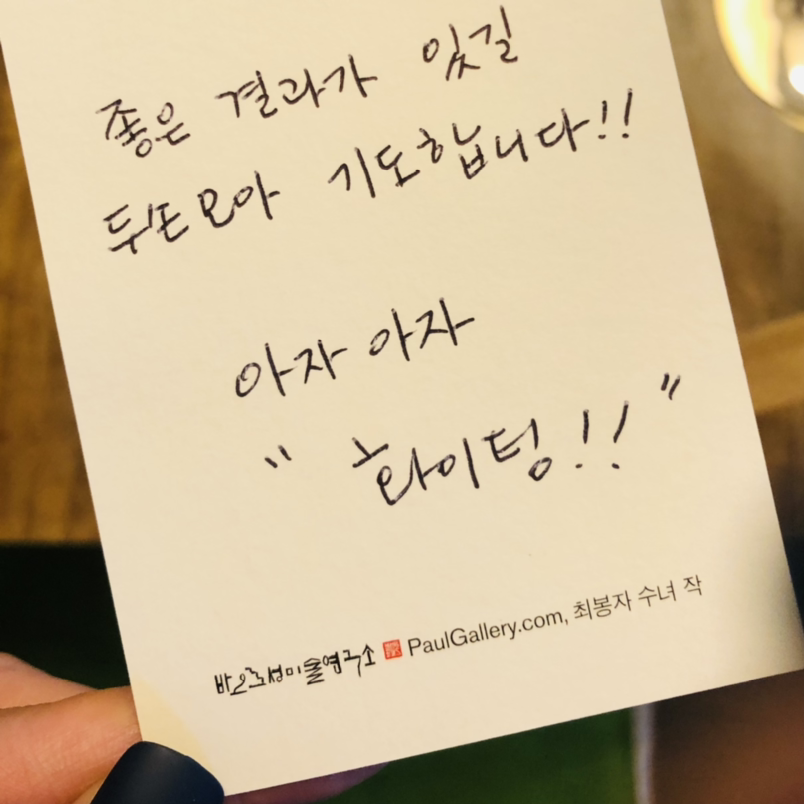 좋은 결과가 있길
두손모아 기도합니다!!
아자 아자
" 화이팅!! "
바오로성미술연구소 PaulGallery.com, 최봉자 수녀 작